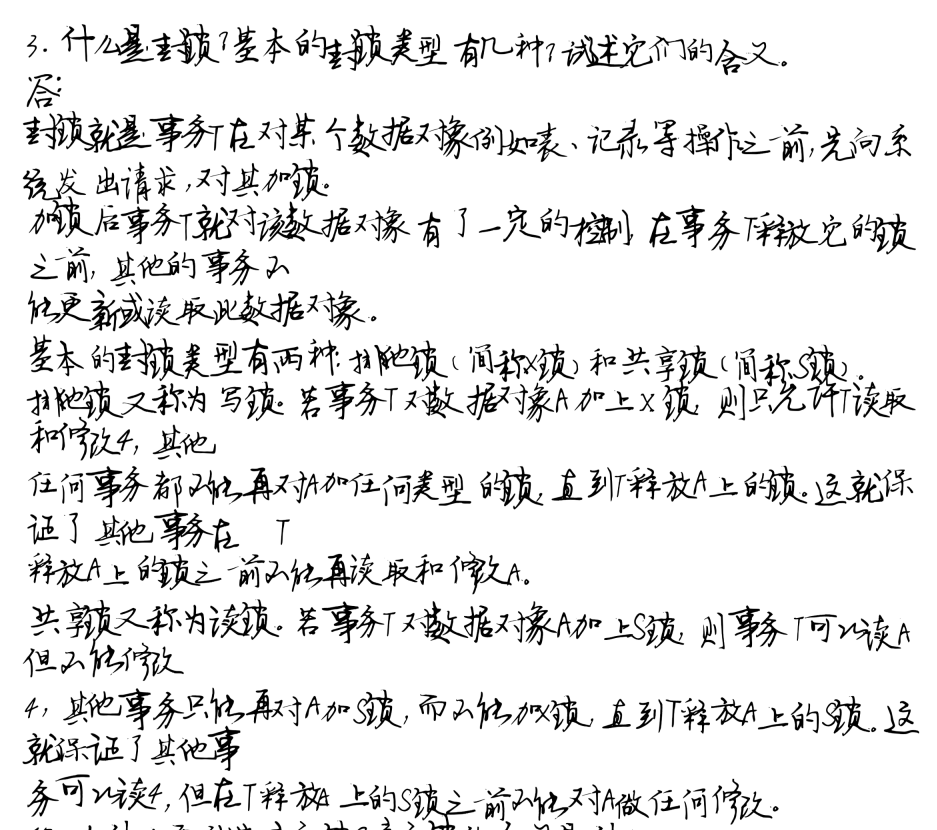 3. 什么是封锁?基本的封锁类型有几种?试述它们的含义。
答:
封锁就是事务T在对某个数据对象例如表、记录等操作之前,先向系
统发出请求,对其加锁。
加锁后事务T就对该数据对象有了一定的控制,在事务T释放它的锁
之前,其他的事务不
能更新或读取此数据对象。
基本的封锁类型有两种:排他锁(简称X锁)和共享锁(简称S锁)。
排他锁又称为写锁。若事务T对数据对象A加上X锁,则只允许T读取
和修改4,其他
任何事务都不能再对A加任何类型的锁,直到T释放A上的锁。这就保
证了其他事务在 T
释放A上的锁之前不能再读取和修改A。
共享锁又称为读锁。若事务T对数据对象A加上S锁,则事务T可以读A
但不能修改
4,其他事务只能再对A加S锁,而不能加X锁,直到T释放A上的S锁。这
就保证了其他事
务可以读4,但在T释放A上的S锁之前不能对A做任何修改。